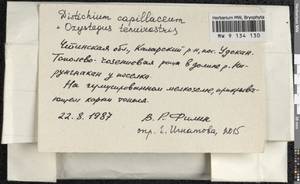 Distichium capillaceum
+ Oxystegus tenuirostris
Herbarium MW, Bryophyta
MW 9 134 130
Читинская обл, Каларский р-н, пос. Удокан.
Тополево-чозениевая роща в долине р. На-
у поселка
На гумусированном мелкоземе, прикрываю-
щем корни тополя.
22.8.1987 В.Р. Филин
опр. Е. Игнатова, 2015